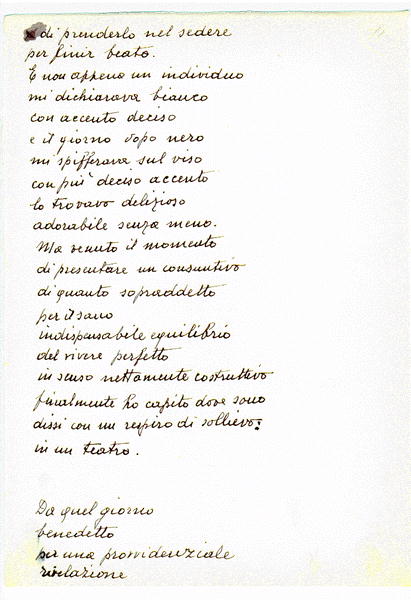 di prenderlo nel sedere
per finir beato.
E non appena un individuo
mi dichiarava bianco
con accento deciso
e il giorno dopo nero
mi spifferava sul viso
con più deciso accento
lo trovavo delizioso
adorabile senza meno.
Ma venuto il momento
di presentare un consuntivo
di quanto sopraddetto
per il sano
indispensabile equilibrio
del vivere perfetto
in senso nettamente costruttivo
finalmente ho capito dove sono
dissi con un respiro di sollievo:
in un teatro.
Da quel giorno
benedetto
per una provvidenziale
rivelazione